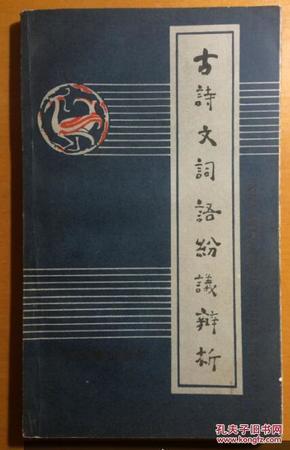 古詩文詞語紛議辯析
孔夫子旧书网